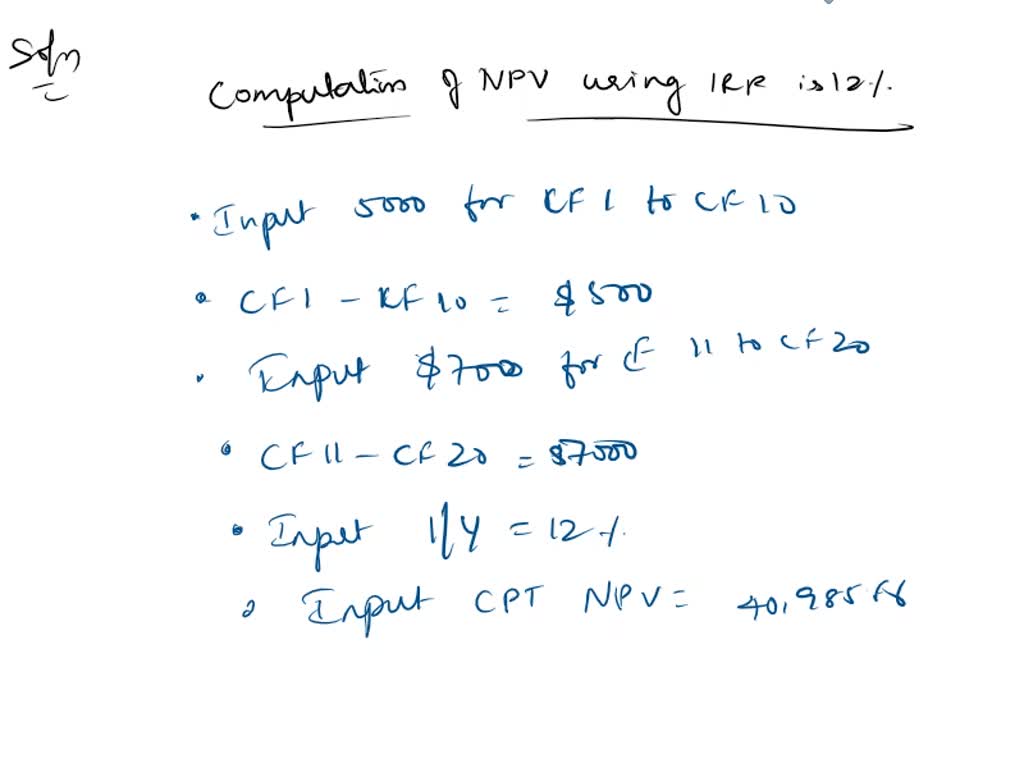 Soln
Computation of NPV using IRR is 12%.
• Input 5000 for CF1 to CF10
• CF1 - CF10 = $500
• Input $7000 for CF 11 to CF20
• CF11 - CF20 = $7000
• Input I/Y = 12%
• Input CPT NPV = 40,985